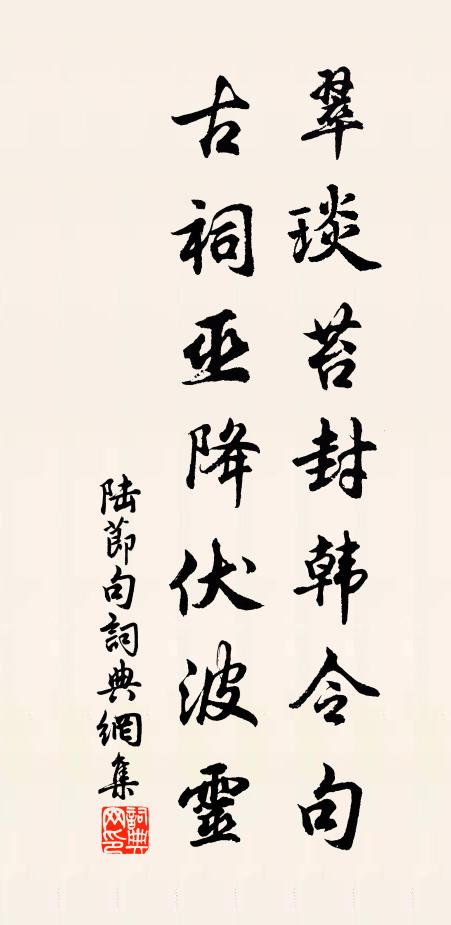 翠琰苔封韩令句
古祠巫降伏波靈
陆節句詞典網集
詞典網印